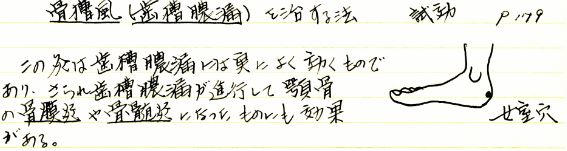 骨槽風(歯槽膿漏)を治する法 試効 P179
この灸は歯槽膿漏には実によく効くもので
あり、さらに歯槽膿漏が進行して顎骨
の骨膜炎や骨髄炎になったものにも効果
がある。
女室穴